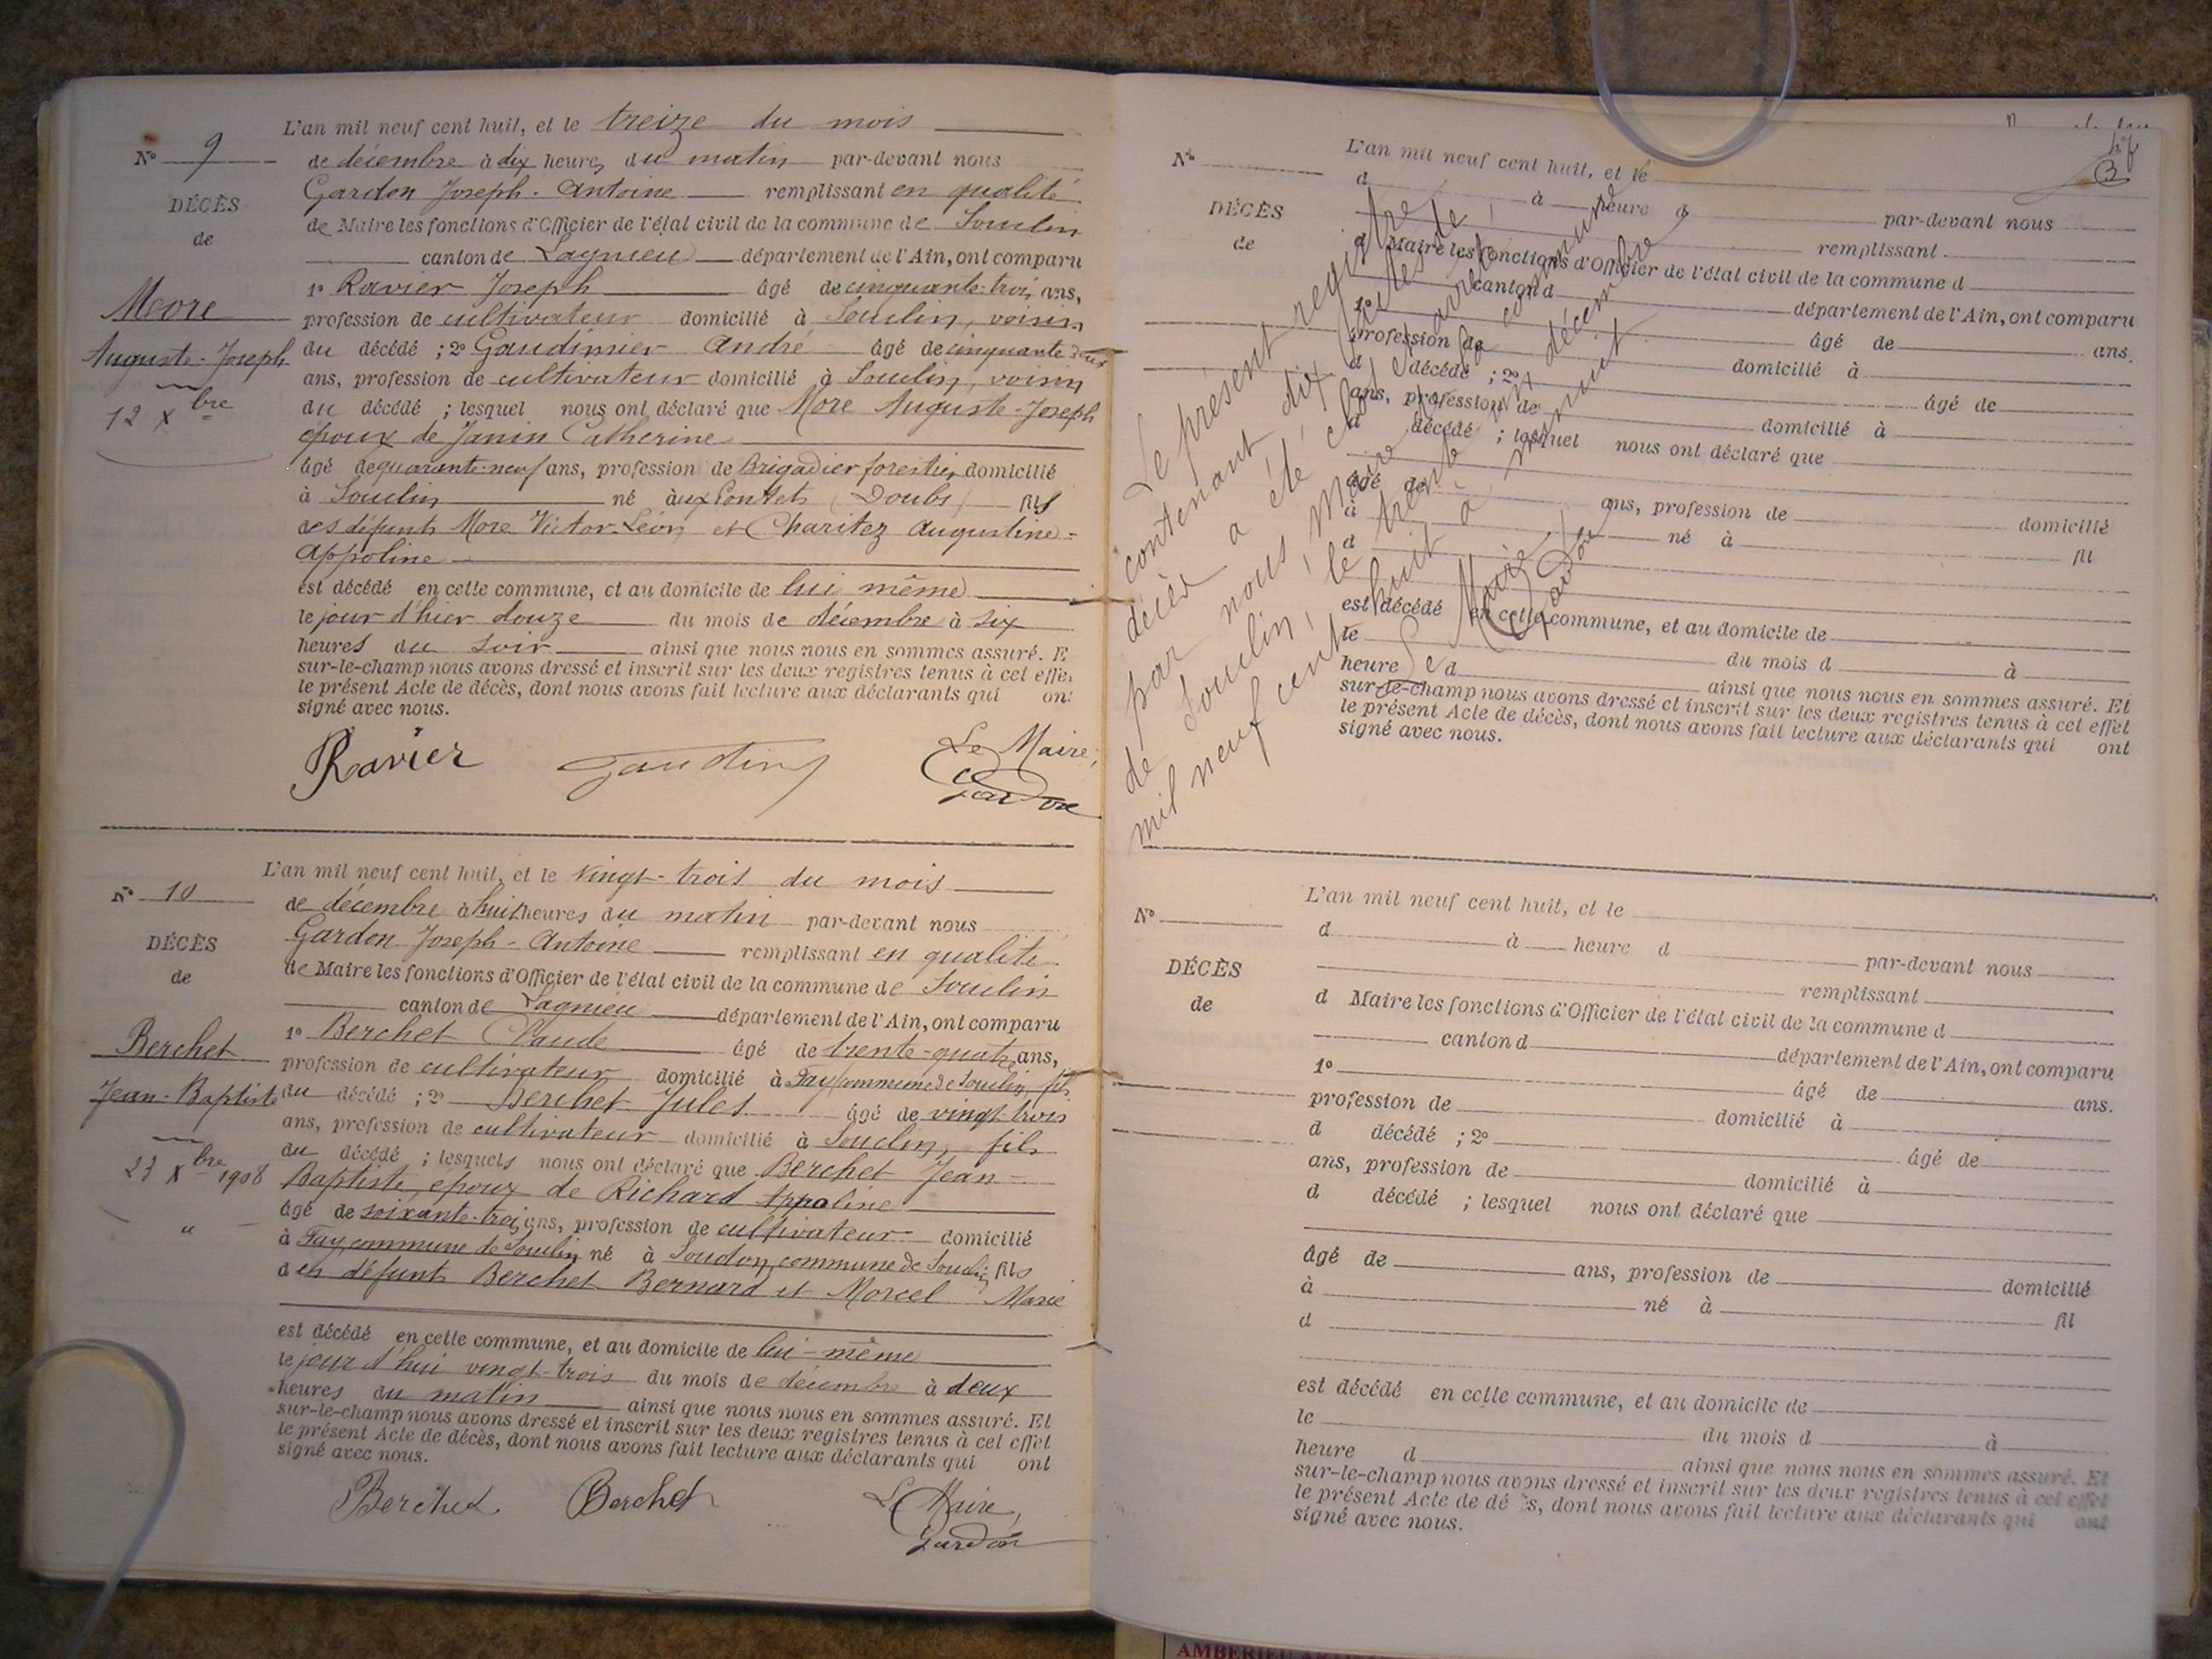 L'an mil neuf cent huit, et le treize du mois
N° 9
de décembre à dix heures du matin par-devant nous
Gardon Joseph-Antoine remplissant en qualité
DÉCÈS
de Maire les fonctions d'Officier de l'état civil de la commune de Souclin
de
canton de Lagnieu département de l'Ain, ont comparu
1° Ravier Joseph âgé de cinquante-trois ans,
More
profession de cultivateur domicilié à Souclin, voisin
Auguste-Joseph
du décédé ; 2° Gaudinier André âgé de cinquante deux
ans, profession de cultivateur domicilié à Souclin, voisin
12 Xbre
du décédé ; lesquel nous ont déclaré que More Auguste-Joseph
époux de Janin Catherine
âgé de quarante-neuf ans, profession de Brigadier forestier domicilié
à Souclin né aux Pontets (Doubs) fils
des défunts More Victor-Léon et Charitez Augustine-
Appoline
est décédé en cette commune, et au domicile de lui même
le jour d'hier douze du mois de décembre à six
heures du soir ainsi que nous nous en sommes assuré. E
sur-le-champ nous avons dressé et inscrit sur les deux registres tenus à cet effe
le présent Acte de décès, dont nous avons fait lecture aux déclarants qui ont
signé avec nous.
Ravier
Le Maire,
Gardon
L'an mil neuf cent huit, et le vingt-trois du mois
N° 10
de décembre à huit heures du matin par-devant nous
Gardon Joseph-Antoine remplissant en qualité
DÉCÈS
de Maire les fonctions d'Officier de l'état civil de la commune de Souclin
de
canton de Lagnieu département de l'Ain, ont comparu
1° Berchet Claude âgé de trente-quatre ans,
Berchet
profession de cultivateur domicilié à Fay commune de Souclin, fils
Jean-Baptiste
du décédé ; 2° Berchet Jules âgé de vingt trois
ans, profession de cultivateur domicilié à Souclin, fils
du décédé ; lesquels nous ont déclaré que Berchet Jean-
23 Xbre 1908
Baptiste, époux de Richard Appoline
âgé de soixante-trois ans, profession de cultivateur domicilié
"
à Fay, commune de Souclin né à Soudon, commune de Souclin fils
des défunts Berchet Bernard et Morcel Marie
est décédé en cette commune, et au domicile de lui-même
le jour d'hui vingt-trois du mois de décembre à deux
heures du matin ainsi que nous nous en sommes assuré. Et
sur-le-champ nous avons dressé et inscrit sur les deux registres tenus à cet effet
le présent Acte de décès, dont nous avons fait lecture aux déclarants qui ont
signé avec nous.
Berchet. Berchet
Le Maire,
Gardon
Le présent registre
contenant dix actes de
décès a été clos et arrêté
par nous, Maire de la commune
de Souclin, le trente un décembre
mil neuf cent huit à minuit
Le Maire,
Gardon
N°
L'an mil neuf cent huit, et le
d à heure d par-devant nous
DÉCÈS
remplissant
de
d Maire les fonctions d'Officier de l'état civil de la commune d
canton d département de l'Ain, ont comparu
1° âgé de ans.
profession de domicilié à
d décédé ; 2° âgé de
ans, profession de domicilié à
d décédé ; lesquel nous ont déclaré que
âgé de ans, profession de domicilié
à né à fil
d
est décédé en cette commune, et au domicile de
le du mois d à
heure d ainsi que nous nous en sommes assuré. Et
sur-le-champ nous avons dressé et inscrit sur les deux registres tenus à cet effet
le présent Acte de décès, dont nous avons fait lecture aux déclarants qui ont
signé avec nous.
L'an mil neuf cent huit, et le
N°
d à heure d par-devant nous
DÉCÈS
remplissant
de
d Maire les fonctions d'Officier de l'état civil de la commune d
canton d département de l'Ain, ont comparu
1° âgé de ans.
profession de domicilié à
d décédé ; 2° âgé de
ans, profession de domicilié à
d décédé ; lesquel nous ont déclaré que
âgé de ans, profession de domicilié
à né à fil
d
est décédé en cette commune, et au domicile de
le du mois d à
heure d ainsi que nous nous en sommes assuré. Et
sur-le-champ nous avons dressé et inscrit sur les deux registres tenus à cet effet
le présent Acte de dé s, dont nous avons fait lecture aux déclarants qui ont
signé avec nous.